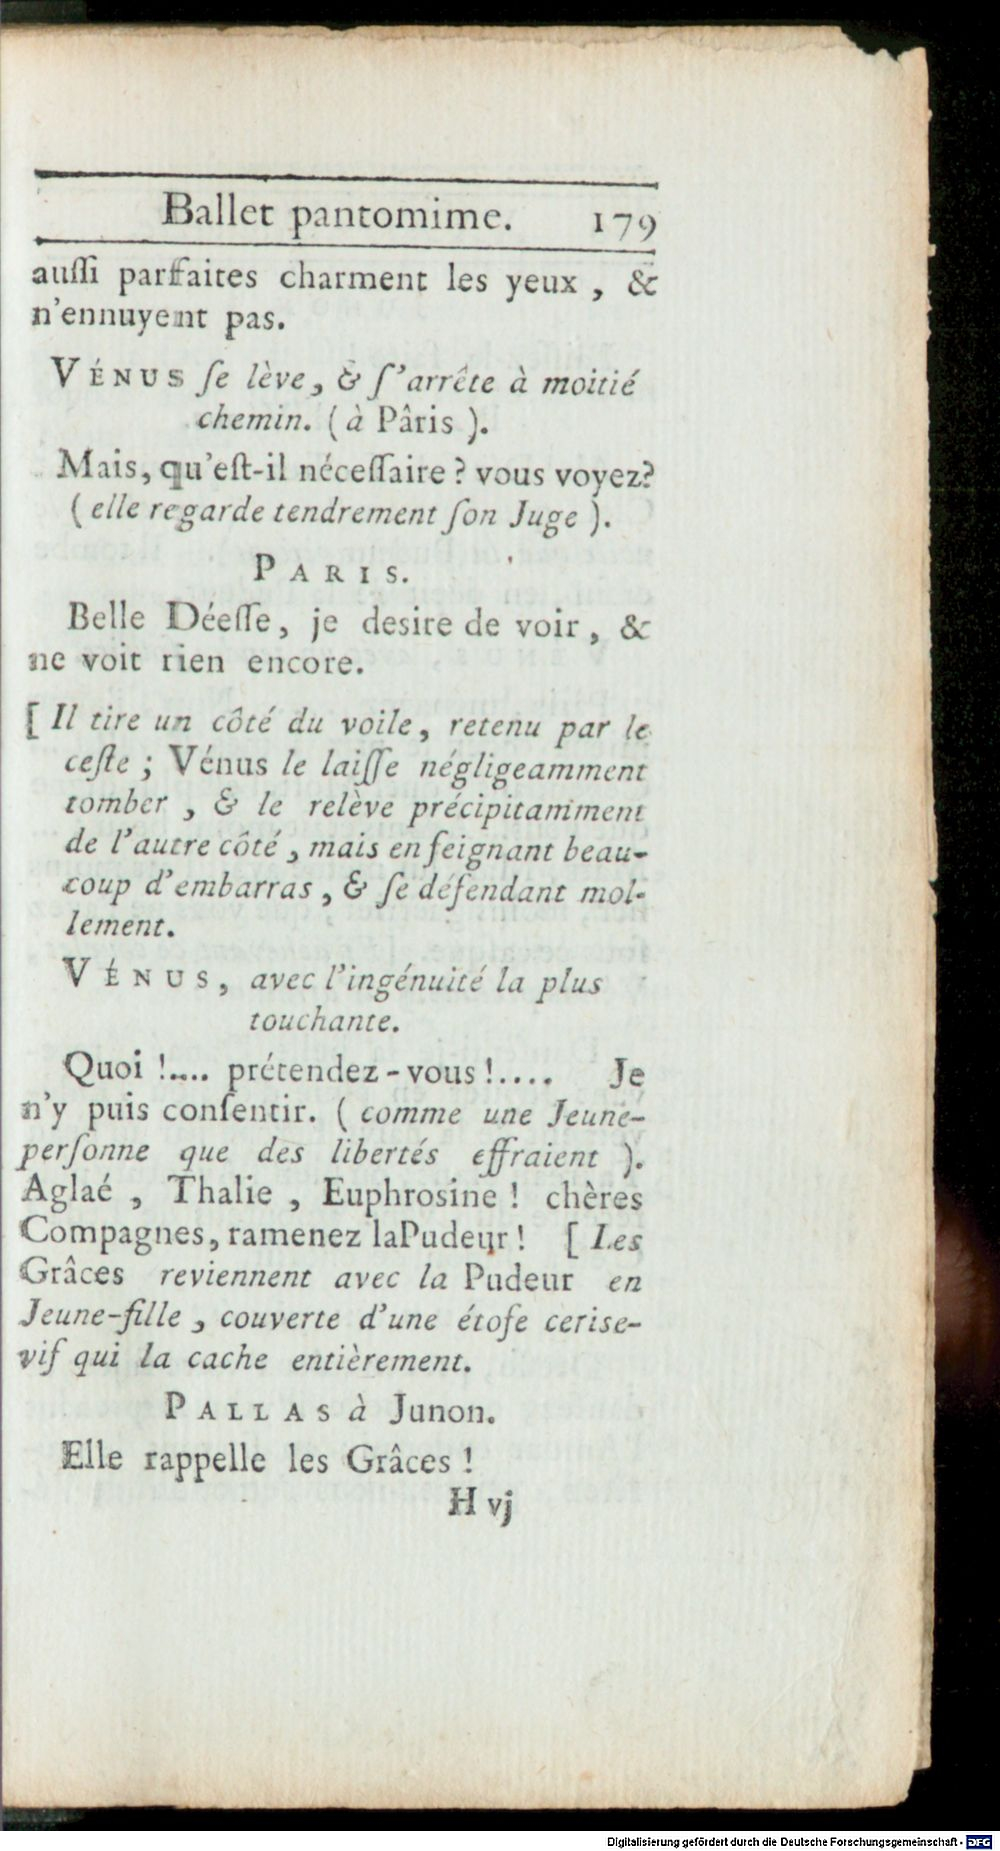 Ballet pantomime. 179
auſſi parfaites charment les yeux , &
n'ennuyent pas.
VÉNUS ſe lève, & ſ'arrête à moitié
chemin. ( à Pâris ).
Mais, qu'eſt-il néceſſaire ? vous voyez?
( elle regarde tendrement ſon Juge ).
PARIS.
Belle Déeſſe, je desire de voir , &
ne voit rien encore.
[ Il tire un côté du voile, retenu par le
ceſte ; Vénus le laiſſe négligeamment
tomber , & le relève précipitamment
de l'autre côté, mais en feignant beau-
coup d'embarras , & ſe défendant mol-
lement.
VÉNUS, avec l'ingénuité la plus
touchante.
Quoi !.... prétendez-vous !.... Je
n'y puis conſentir. ( comme une Jeune-
perſonne que des libertés effraient ).
Aglaé , Thalie , Euphrosine ! chères
Compagnes, ramenez laPudeur ! [ Les
Grâces reviennent avec la Pudeur en
Jeune-fille , couverte d'une étofe cerise-
vif qui la cache entièrement.
PALLAS à Junon.
Elle rappelle les Grâces !
H vj
Digitalisierung gefördert durch die Deutsche Forschungsgemeinschaft - DFG